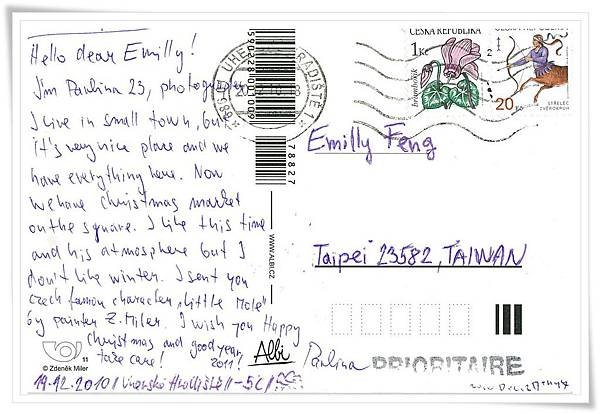 Hello dear Emilly!
I'm Paulina 23, photographer
I live in small town, but
it's very nice place and we
have everything here. Now
we have christmas market
on the square. I like this time
and his atmosphere but I
don't like winter. I sent you
czech famous character „Little Mole"
by painter Z. Miler. I wish you Happy
Christmas and good year
2011!
take care!
Paulina
19.12.2010/
-5C/
11
© Zdeněk Miler
Albi
WWW.ALBI.CZ
78827
ČESKÁ REPUBLIKA
1Kč
brambořík
ČESKÁ REPUBLIKA
20 Kč
STŘELEC
ZVĚROKRUH
Emilly Feng
Taipei 23582, TAIWAN
PRIORITAIRE